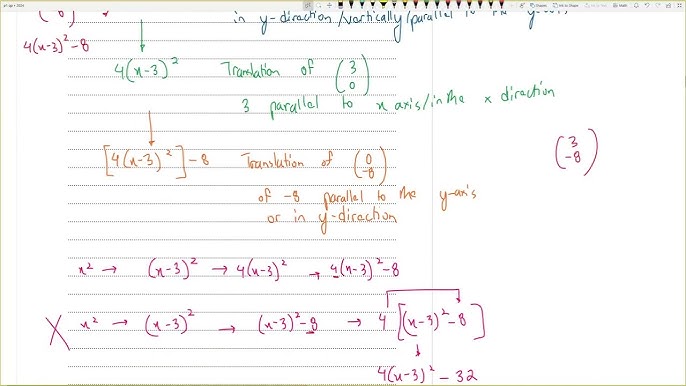 in y-direction/vertically/parallel to the y-axis
4(x-3)² -8
4(x-3)² Translation of (3 0)
3 parallel to x axis/in the x direction
[4(x-3)²] -8 Translation of (0 -8) (3 -8)
of -8 parallel to the y-axis
or in y-direction
x² → (x-3)² → 4(x-3)² → 4(x-3)² -8
X x² → (x-3)² → (x-3)² -8 → 4[(x-3)² -8]
4(x-3)² - 32